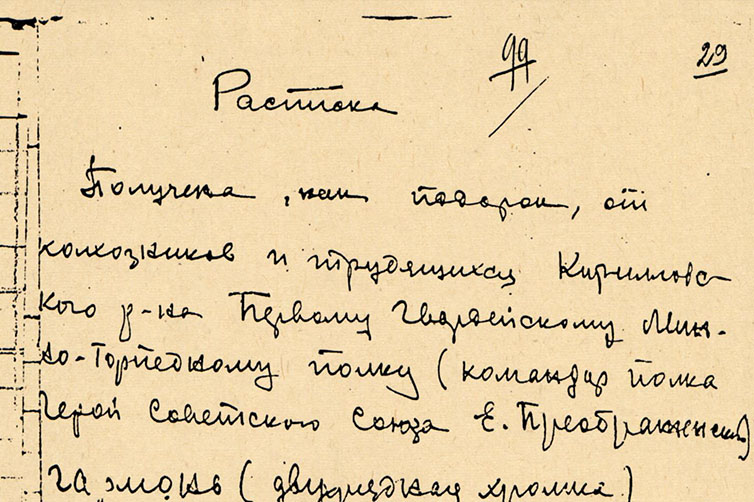 99
29
Расписка
Получена, как подарок, от
колхозников и трудящихся Кирилловс-
кого р-на Первому Гвардейскому Мин-
но-Торпедному полку (командир полка
Герой Советского Союза Е. Преображенский)
гармонь (двухрядная хромка)